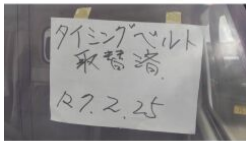 タイミングベルト
取替済.
R7.2.25